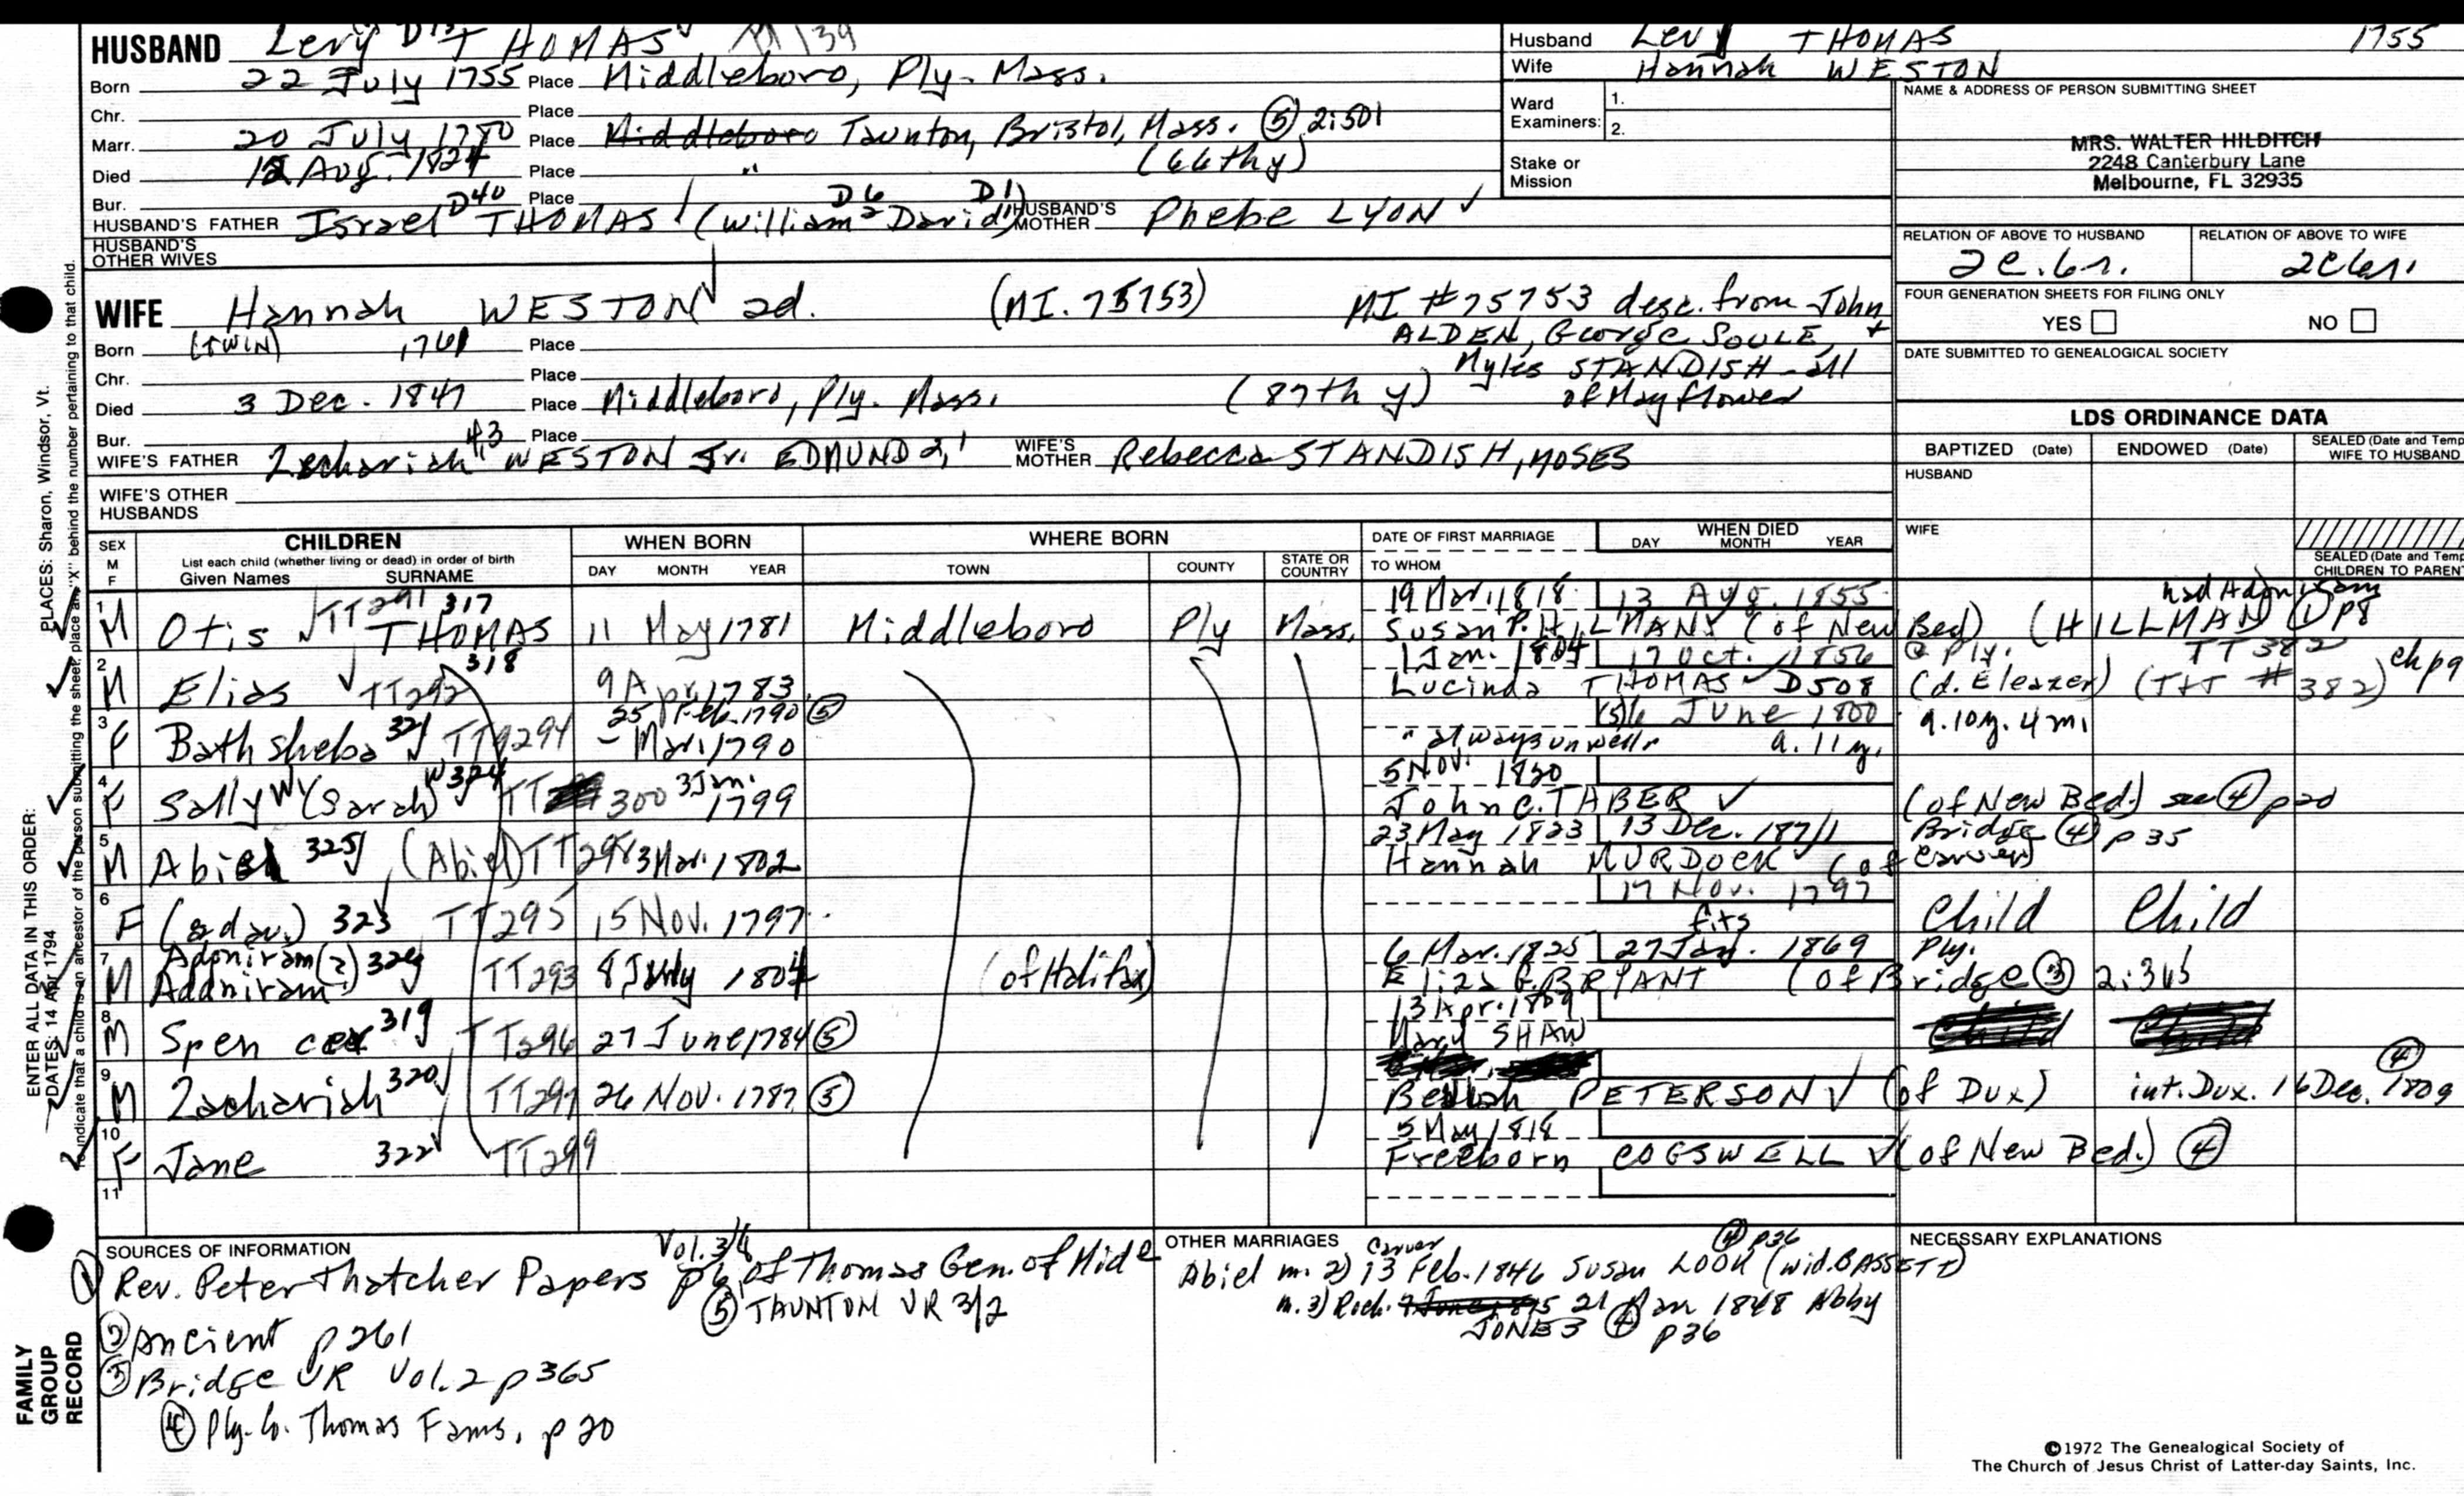 HUSBAND Levy D13 THOMAS 139
Born 22 July 1755 Place Middleboro, Ply. Mass.
Chr. Place
Marr. 20 July 1780 Place Middleboro Taunton, Bristol, Mass. (5) 2:501
Died Aug. 1824 Place " (66th y)
Bur. Place
HUSBAND'S FATHER Israel D40 THOMAS (William D6 2 David D1) HUSBAND'S MOTHER Phebe LYON ✓
HUSBAND'S OTHER WIVES
Husband Levy THOMAS 1755
Wife Hannah WESTON
Ward Examiners: 1.
2.
Stake or Mission
NAME & ADDRESS OF PERSON SUBMITTING SHEET
MRS. WALTER HILDITCH
2248 Canterbury Lane
Melbourne, FL 32935
RELATION OF ABOVE TO HUSBAND RELATION OF ABOVE TO WIFE
FOUR GENERATION SHEETS FOR FILING ONLY
YES NO
DATE SUBMITTED TO GENEALOGICAL SOCIETY
WIFE Hannah WESTON 2d. (MI. 75753) MI #75753 desc. from John
ALDEN, George SOULE, +
Myles STANDISH - all
of Mayflower
Born (TWIN) 1761 Place
Chr. Place
Died 3 Dec. 1847 Place Middleboro, Ply. Mass. (87th y)
Bur. Place
WIFE'S FATHER Zechariah 4,3 WESTON Jr. EDMUND 2,1 WIFE'S MOTHER Rebecca STANDISH, MOSES
WIFE'S OTHER HUSBANDS
LDS ORDINANCE DATA
BAPTIZED (Date) ENDOWED (Date) SEALED (Date and Temp
WIFE TO HUSBAND
HUSBAND
WIFE
SEALED (Date and Temp
CHILDREN TO PAREN
SEX M F
CHILDREN
List each child (whether living or dead) in order of birth
Given Names SURNAME
WHEN BORN
DAY MONTH YEAR
WHERE BORN
TOWN COUNTY STATE OR COUNTRY
DATE OF FIRST MARRIAGE
TO WHOM
WHEN DIED
DAY MONTH YEAR
1 M Otis ✓ TT291 317 THOMAS 11 May 1781 Middleboro Ply Mass. 19 Mar. 1818 13 Aug. 1855
Susan P. HILMAN (of New Bed) (HILLMAN) (1) p8
had Adoniram
2 M Elias ✓ TT292 318 9 Apr 1783 1 Jan. 1804 17 Oct. 1856 @ Ply. TT382
Lucinda THOMAS D508 (d. Eleazer) (TTT #382)
3 F Bathsheba 321 TT294 25 Feb. 1790 (5) - Mar. 1790 (5) 6 June 1800
" always unwell" a. 11 y. a. 10 y. 4 m.
4 F Sally W (Sarah) W 324 TT 300 3 Jan. 1799 5 Nov. 1820
John C. TABER ✓ (of New Bed.) see (4) p20
5 M Abiel 325 (Abiel) TT298 3 Mar. 1802 23 May 1823 13 Dec. 1871 Bridge (4) p35
Hannah MURDOCK (of Carver)
6 F (a dau.) 323 TT295 15 Nov. 1797 17 Nov. 1797
fits Child Child
7 M Adoniram (2) TT293 8 July 1804 (of Halifax) 6 Mar. 1825 27 Jan. 1869 Ply.
Addniram Eliza G. BRYANT (of Bridge (3) 2:365
8 M Spencer 319 TT296 27 June 1784 (5) 13 Apr. 1809
Mary SHAW
9 M Zachariah 320 TT297 26 Nov. 1787 (5)
PETERSON ✓ (of Dux) int. Dux. 16 Dec. 1809 (4)
10 F Jane 322 TT299 5 May 1818
Freeborn COGSWELL ✓ (of New Bed.) (4)
11
SOURCES OF INFORMATION
(1) Rev. Peter Thatcher Papers Vol. 3/4 p6, of Thomas Gen. of Mid
(5) TAUNTON VR 3/2
(2) Ancient p261
(3) Bridge VR Vol. 2 p365
(4) Ply. Co. Thomas Fams. p 20
OTHER MARRIAGES
Abiel m. 2) Carver 13 Feb. 1846 Susan LOOK (wid. BASSETT) (4) p36
m. 3) Roch. 21 Jan 1848 Abby
JONES (4) p36
NECESSARY EXPLANATIONS
©1972 The Genealogical Society of
The Church of Jesus Christ of Latter-day Saints, Inc.
ENTER ALL DATA IN THIS ORDER:
PLACES: Sharon, Windsor, Vt.
DATES: 14 Apr 1794
To indicate that a child is an ancestor of the person submitting the sheet, place an "X" behind the number pertaining to that child.
FAMILY GROUP RECORD